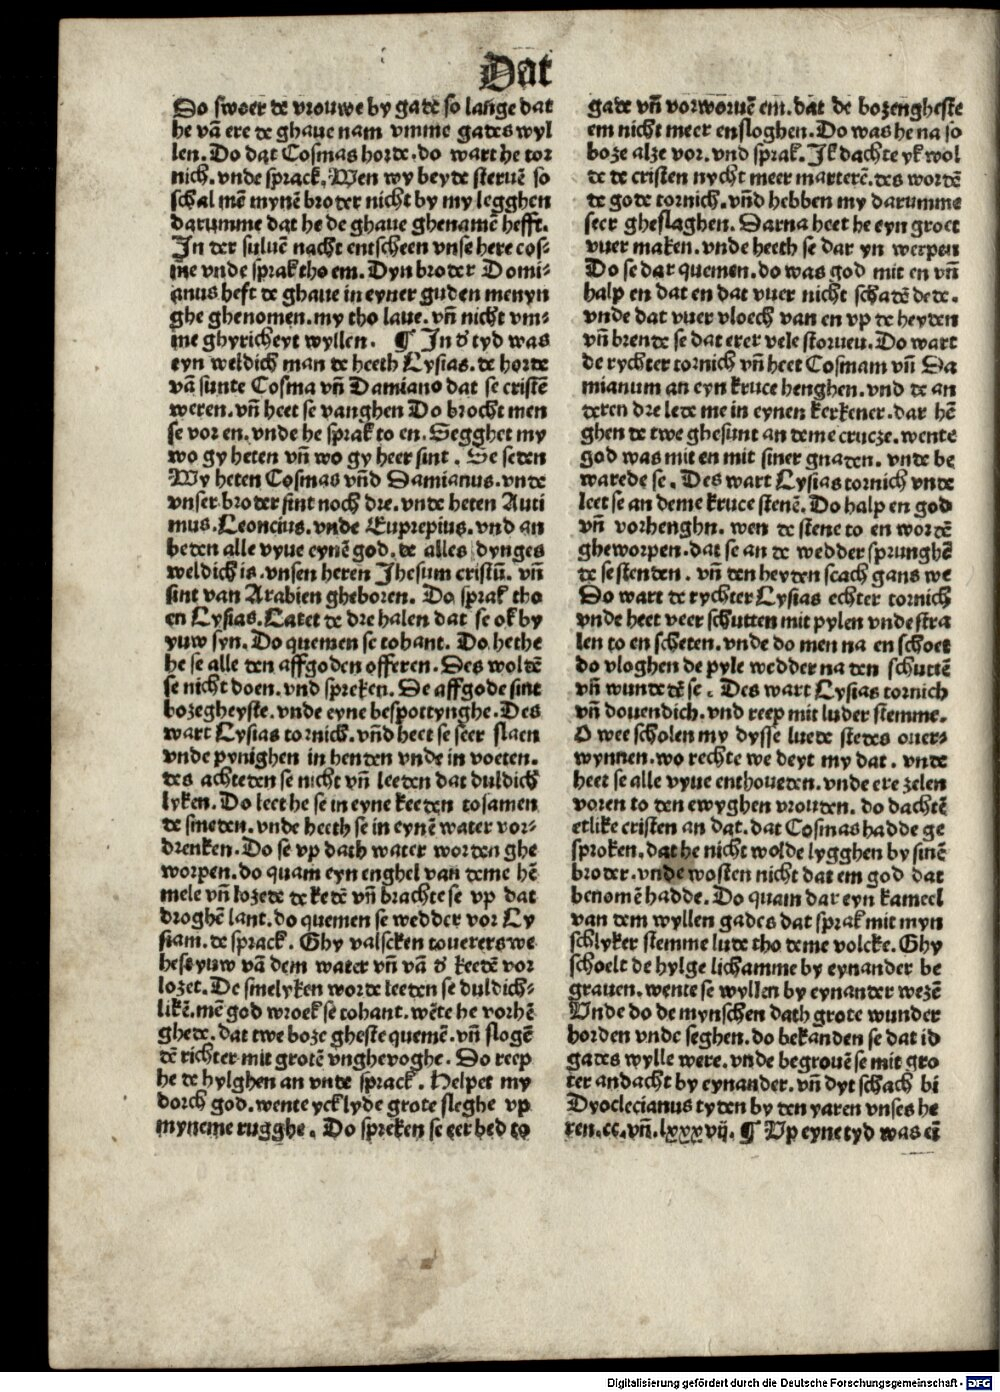 Dat
Do swoer de vrouwe by gade so lange dat
he vā ere de ghaue nam vmme gades wyl
len. Do dat Cosmas horde. do wart he tor
nich. vnde sprack. Wen wy beyde steruē so
schal mē mynē broder nicht by my legghen
darumme dat he de ghaue ghenamē hefft.
In der suluē nacht entscheen vnse here cos⸗
me vnde sprak tho em. Dyn broder Domi⸗
anus heft de ghaue in eyner guden menyn
ghe ghenomen. my tho laue. vn̄ nicht vm⸗
me ghyricheyt wyllen. ¶ In d' tyd was
eyn weldich man de heeth Lysias. de horde
vā sunte Cosma vn̄ Damiano dat se cristē
weren. vn̄ heet se vanghen Do brocht men
se vor en. vnde he sprak to en. Segghet my
wo gy heten vn̄ wo gy heer sint. Se seden
Wy heten Cosmas vn̄d Damianus. vnde
vnser broder sint noch dre. vnde heten Anti
mus. Leoncius. vnde Euprepius. vnd an
beden alle vyue eynē god. de alles dynges
weldich is. vnsen heren Jhesum cristū. vn̄
sint van Arabien gheboren. Do sprak tho
en Lysias. Latet de dre halen dat se ok by
yuw syn. Do quemen se tohant. Do hethe
he se alle den affgoden offeren. Des woldē
se nicht doen. vnd spreken. De affgode sint
bozegheyste. vnde eyne bespottynghe. Des
wart Lysias tornich. vn̄d heet se seer slaen
vnde pynighen in henden vnde in voeten.
des achteden se nicht vn̄ leeden dat duldich
lyken. Do leet he se in eyne keeden tosamen
de smeden. vnde heeth se in eynē water vor⸗
drenken. Do se vp dath water worden ghe
worpen. do quam eyn enghel van deme hē
mele vn̄ lozede de kedē vn̄ brachte se vp dat
droghē lant. do quemen se wedder vor Ly
siam. de sprack. Ghy valscken touerers we
hefs yuw vā dem water vn̄ vā d' keedē vor
lozet. De smelyken worde leeden se duldich⸗
likē. mē god wroek se tohant. wēte he vorhē
ghede. dat twe boze gheste quemē. vn̄ slogē
dē richter mit grotē vnghevoghe. Do reep
he de hylghen an vnde sprack. Helpet my
dorch god. wente yck lyde grote sleghe vp
myneme rugghe. Do spreken se eer bed to
gade vn̄ vorworuē em. dat de bozengheste
em nicht meer ensloghen. Do was he na so
boze alze vor. vnd sprak. Jk dachte yk wol
de de cristen nycht meer marterē. des wordē
de gode tornich. vn̄d hebben my darumme
seer gheslaghen. Darna heet he eyn groet
vuer maken. vnde heeth se dar yn werpen
Do se dar quemen. do was god mit en vn̄
halp en dat en dat vuer nicht schadē dede.
vnde dat vuer vloech van en vp de heyden
vn̄ brende se dat erer vele storuen. Do wart
de rychter tornich vn̄ heet Cosmam vn̄ Da
mianum an eyn kruce henghen. vnd de an
deren dre lede me in eynen kerkener. dar hē
ghen de twe ghesunt an deme crucze. wente
god was mit en mit siner gnaden. vnde be
warede se. Des wart Lysias tornich vnde
leet se an deme kruce stenē. Do halp en god
vn̄ vorhenghn. wen de stene to en wordē
gheworpen. dat se an de wedder sprunghē
de se stenden. vn̄ den heyden scach gans we
Do wart de rychter Lysias echter tornich
vnde heet veer schutten mit pylen vnde stra
len to en scheten. vnde do men na en schoet
do vloghen de pyle wedder na den schuttē
vn̄ wundedē se. Des wart Lysias tornich
vn̄ douendich. vnd reep mit luder stemme.
O wee scholen my dysse luede stedes ouer⸗
wynnen. wo rechte we deyt my dat. vnde
heet se alle vyue enthoueden. vnde ere zelen
voren to den ewyghen vrouden. do dachtē
etlike cristen an dat. dat Cosmas hadde ge
sproken. dat he nicht wolde lygghen by sinē
broder. vnde wosten nicht dat em god dat
benomē hadde. Do quam dar eyn kameel
van dem wyllen gades dat sprak mit myn
schlyker stemme lude tho deme volcke. Ghy
schoelt de hylge lichamme by eynander be
grauen. wente se wyllen by eynander wezē
Vnde do de mynschen dath grote wunder
horden vnde seghen. do bekanden se dat id
gades wylle were. vnde begrouē se mit gro
ter andacht by eynander. vn̄ dyt schach bi
Dyoclecianus tyden by den yaren vnses he
ren. cc. vn̄. lxxxvij. ¶ Vp eyne tyd was eī
Digitalisierung gefördert durch die Deutsche Forschungsgemeinschaft - DFG